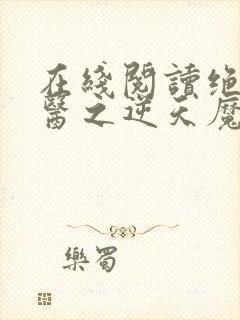 在綫閱讀绝
醫之逆天魔
樂蜀